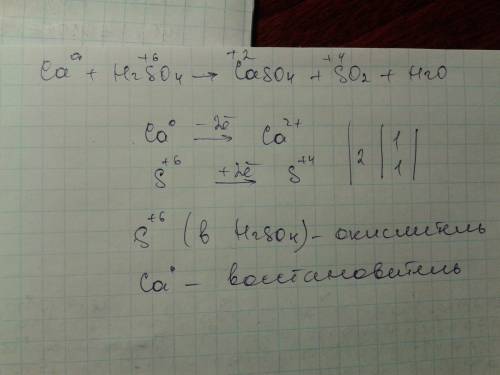 Ca⁰ + H₂S⁺⁶O₄ → Ca⁺²SO₄ + S⁺⁴O₂ + H₂O
Ca⁰ −2ē → Ca²⁺ | | 1 |
S⁺⁶ +2ē → S⁺⁴ | 2 | 1 |
S⁺⁶ (в H₂SO₄) – окислитель
Ca⁰ – восстановитель